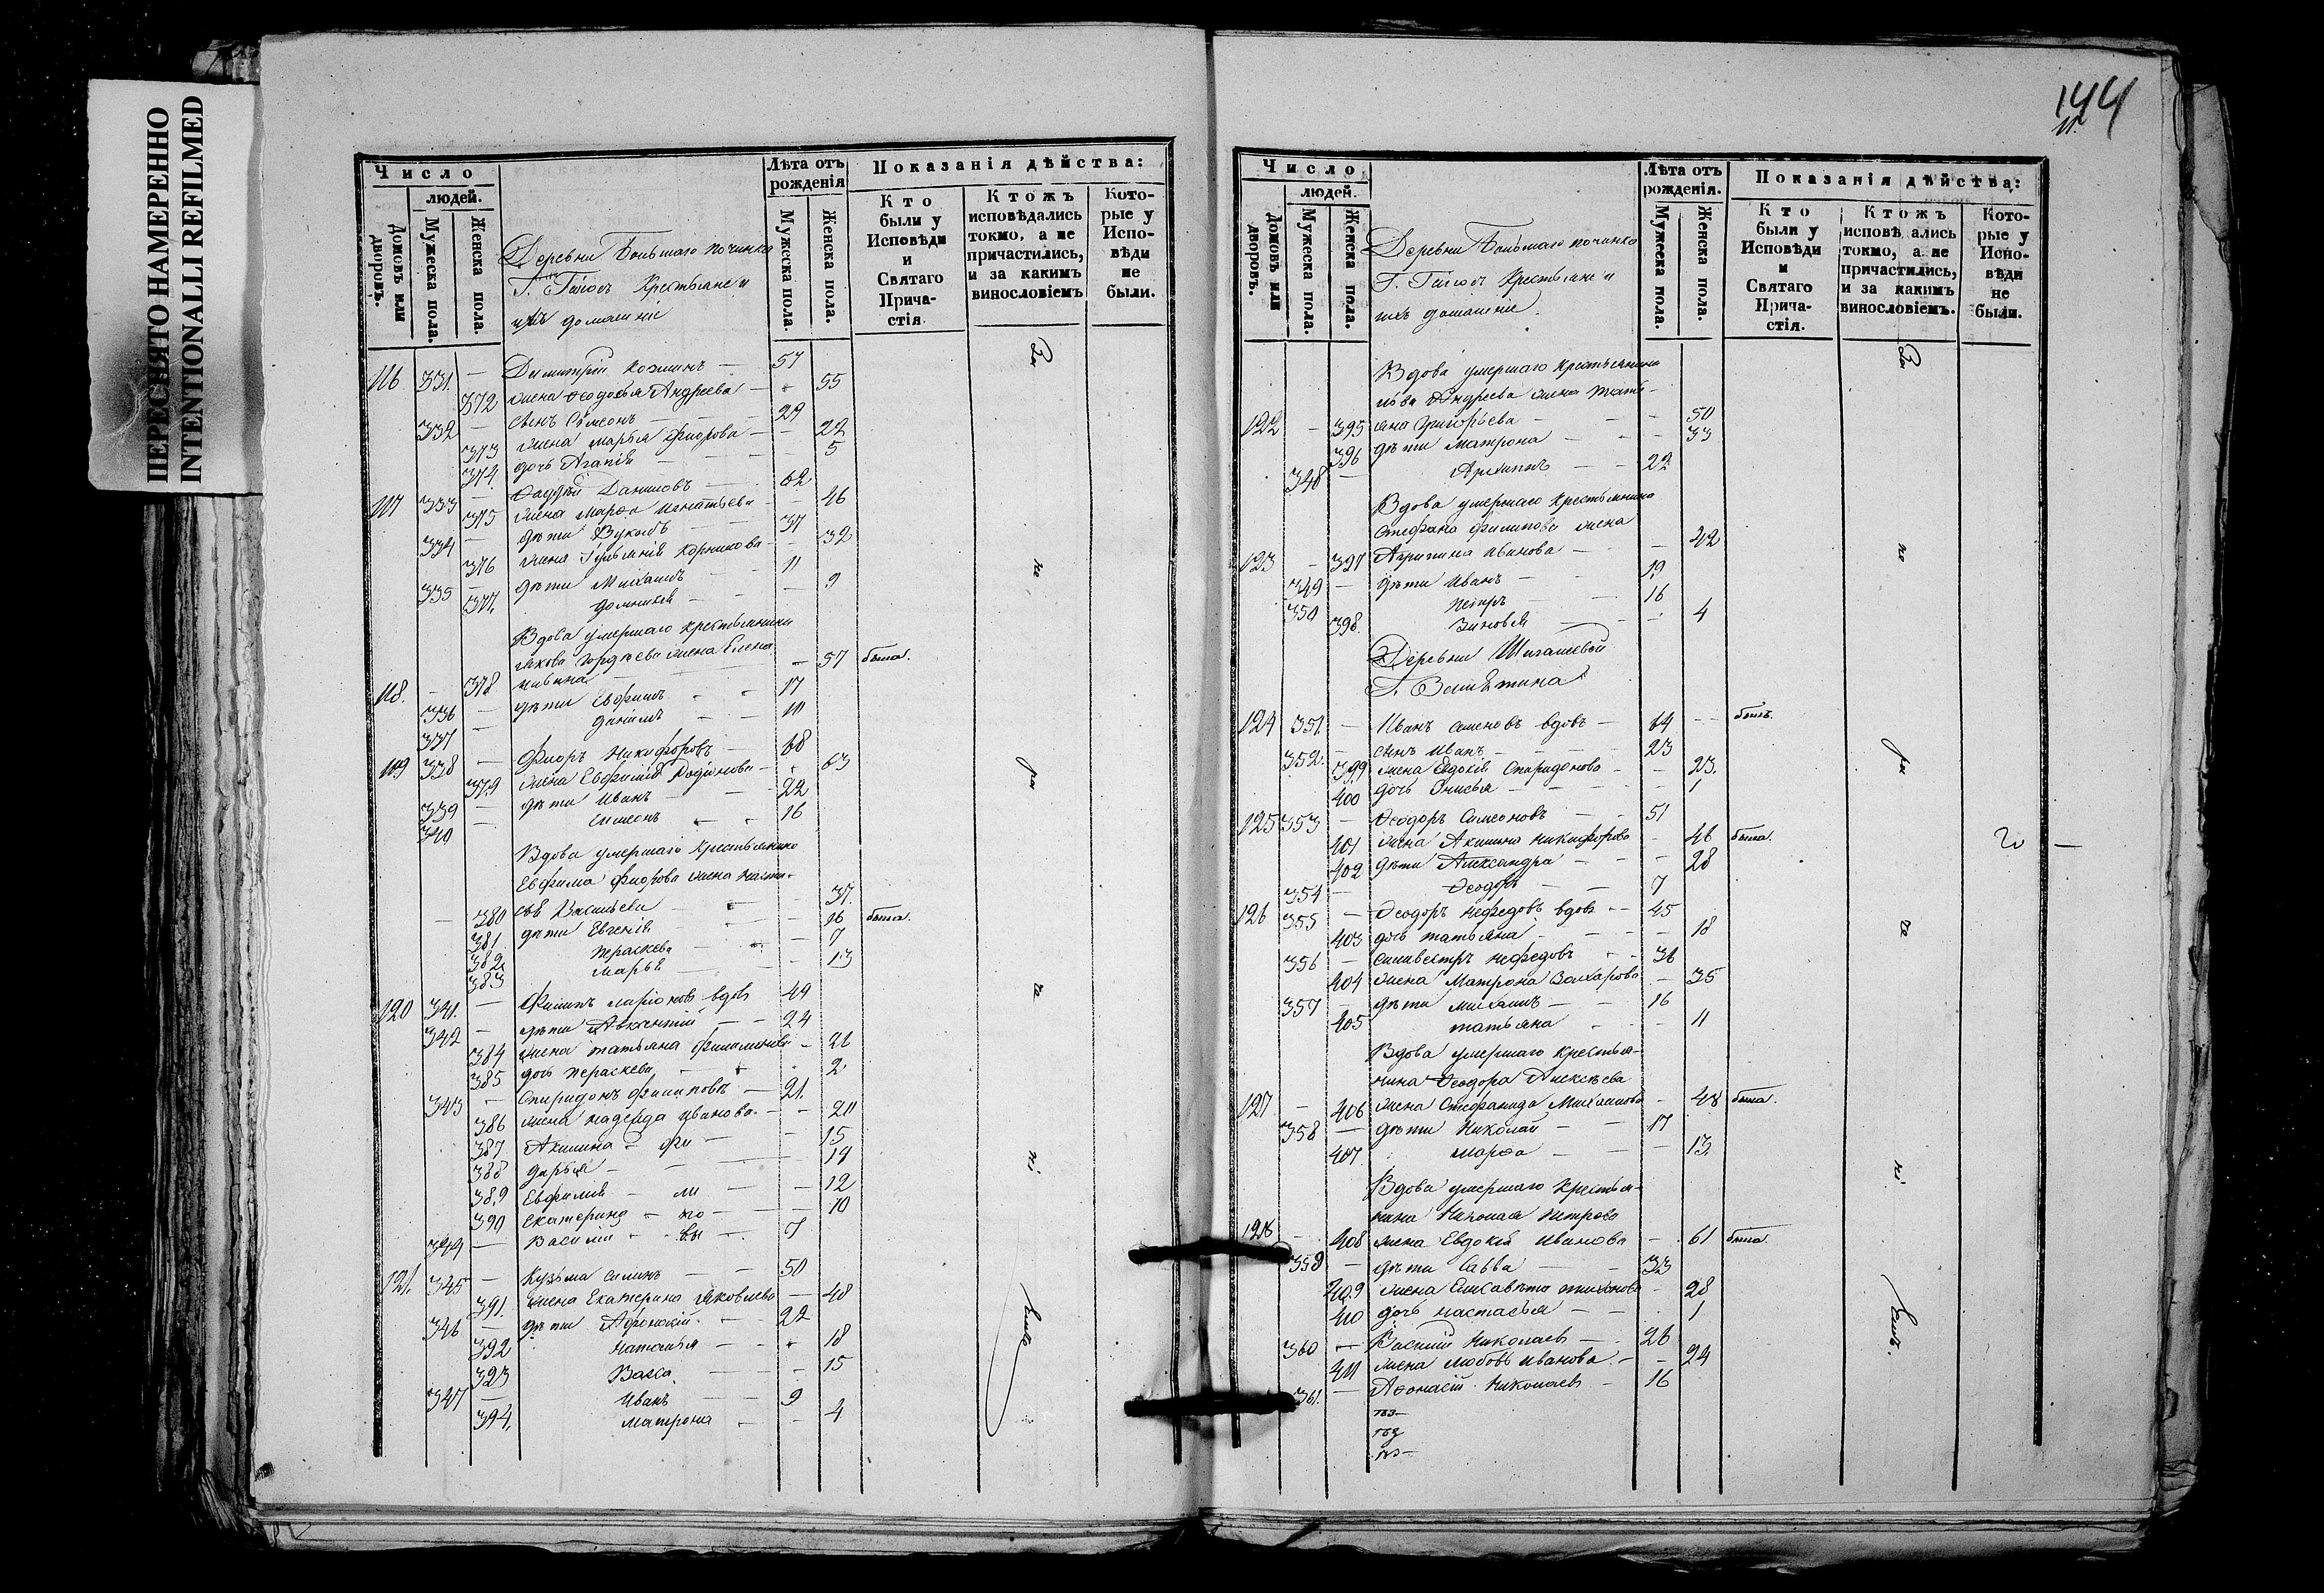 ПЕРЕСНЯТО НАМЕРЕННО
INTENTIONALLI REFILMED
Число
людей.
Домовъ или дворовъ.
Мужеска пола.
Женска пола.
Деревни Большаго починка
Г. крестьяне и
ихъ домашніе
Лѣта отъ рожденія
Мужеска пола.
Женска пола.
Показанія дѣйства:
Кто были у Исповѣди и Святаго Причастія.
Ктожъ исповѣдались токмо, а не причастились, и за какимъ винословіемъ
Которые у Исповѣди не были.
116 331. — Димитрій Козминъ — 57
372 жена Ѳеодосья Андреева — 55
332 — сынъ Сѵмеонъ — 29
373 жена Марья Фролова — 22
374 дочь Агапія — 5
117 333 — Ѳаддѣй Даниловъ — 62
375 жена Марѳа Игнатьева — 46
334 — дѣти Вуколъ — 37
376 жена Гуліанія Корнилова — 32
335 — дѣти Михаилъ — 11
377. Домникія — 9
Вдова умершаго крестьянина
Іакова Гордѣева жена Елена
118. — 378 — 57 была.
336 — дѣти Евфимъ — 17
337 — Даніилъ — 11
119 338 — Флоръ Никифоровъ — 68
379 жена Евфимія Родіонова — 63
339 — дѣти Иванъ — 22
340 — Симеонъ — 16
Вдова умершаго крестьянина
Евфима Флорова жена Наста-
— 380 сья Васильева — 37.
381. дѣти Евгенія — 16 была.
382 Параскева — 7
383 Марья — 13
120 341. — Филипъ Ларіоновъ вдовъ 49
342 — дѣти Авксентій — 24
384 жена Татьяна Филимонова — 26
385 дочь Параскева — 2
343 — Спиридонъ Филиповъ — 21.
386 жена Надежда Иванова — 20
387 Акилина — фи — 15
388 Дарья — 14
389 Евфимія — ли — 12
390 Екатерина — по — 10
344 — Василій — вы — 7
121. 345 — Кузьма Силинъ — 50
391. жена Екатерина Яковлева — 48
346 — дѣти Афонасій — 22
392 Наталья — 18
393 Васса — 15
347 — Иванъ — 9
394. Матрона — 4
За
не
ра
че
ні
емъ
144
Число
людей.
Домовъ или дворовъ.
Мужеска пола.
Женска пола.
Деревни Большаго починка
Г. Крестьяне и
ихъ домашніе.
Лѣта отъ рожденія.
Мужеска пола.
Женска пола.
Показанія дѣйства:
Кто были у Исповѣди и Святаго Причастія.
Ктожъ исповѣдались токмо, а не причастились, и за какимъ винословіемъ.
Которые у Исповѣди не были.
Вдова умершаго Крестьянина
Льва Андреева жена Тать-
122 — 395 яна Григорьева — 50
396 дѣти Матрона — 33
348 — Архипъ — 22
Вдова умершаго Крестьянина
Стефана Филипова жена
123 — 397 Агрипина Иванова — 42
349 — дѣти Иванъ — 19
350 Петръ — 16
398. Зиновья — 4
Деревни Шигалевой
Г.
124 351. — Иванъ Семеновъ вдовъ — 64 — былъ.
352. — сынъ Иванъ — 23
399 жена Евдокія Спиридонова — 23.
400 дочь Онисья — 1
125 353 — Ѳеодоръ Симеоновъ — 51
401 жена Акилина Никифорова — 46 была.
402 дѣти Александра — 28
354 — Ѳеодоръ — 7
126 355 — Ѳеодоръ Нефедовъ вдовъ — 45
403 дочь Татьяна — 18
356 — Силивестръ Нефедовъ — 36
404 жена Матрона Захарова — 35
357 — дѣти Михаилъ — 16
405 Татьяна — 11
Вдова умершаго крестья-
нина Ѳеодора Алексѣева
127 — 406 жена Стефанида Михаилова — 48 была.
358 — дѣти Николай — 17
407. Марѳа — 13
Вдова умершаго Крестья-
нина Николая Петрова
128 — 408 жена Евдокія Иванова — 61 была.
359 — дѣти Савва — 33
409 жена Елисавета Тихонова — 28
410 дочь Настасья — 1
360 — Василій Николаевъ — 26
411 жена Любовь Иванова — 24
361. — Аѳонасій Николаевъ — 16
За
не
ра
че
ні
емъ.